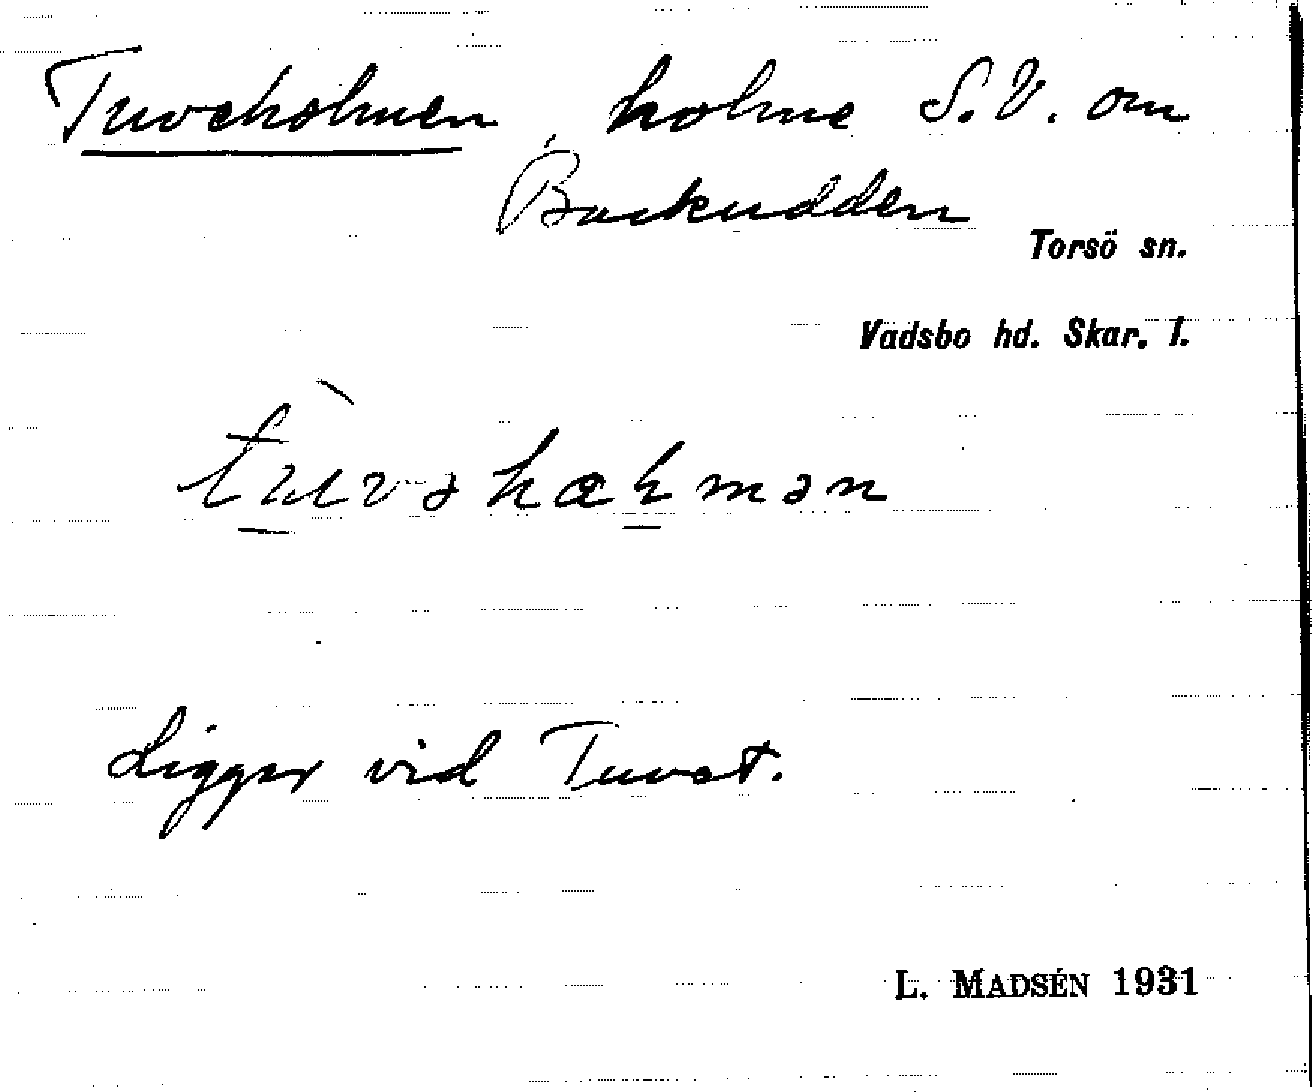 Tuveholmen, holme S.V. om
Backudden
Torsö sn.
Vadsbo hd. Skar. l.
Ligger vid Tuvet.
L. MADSÉN 1931